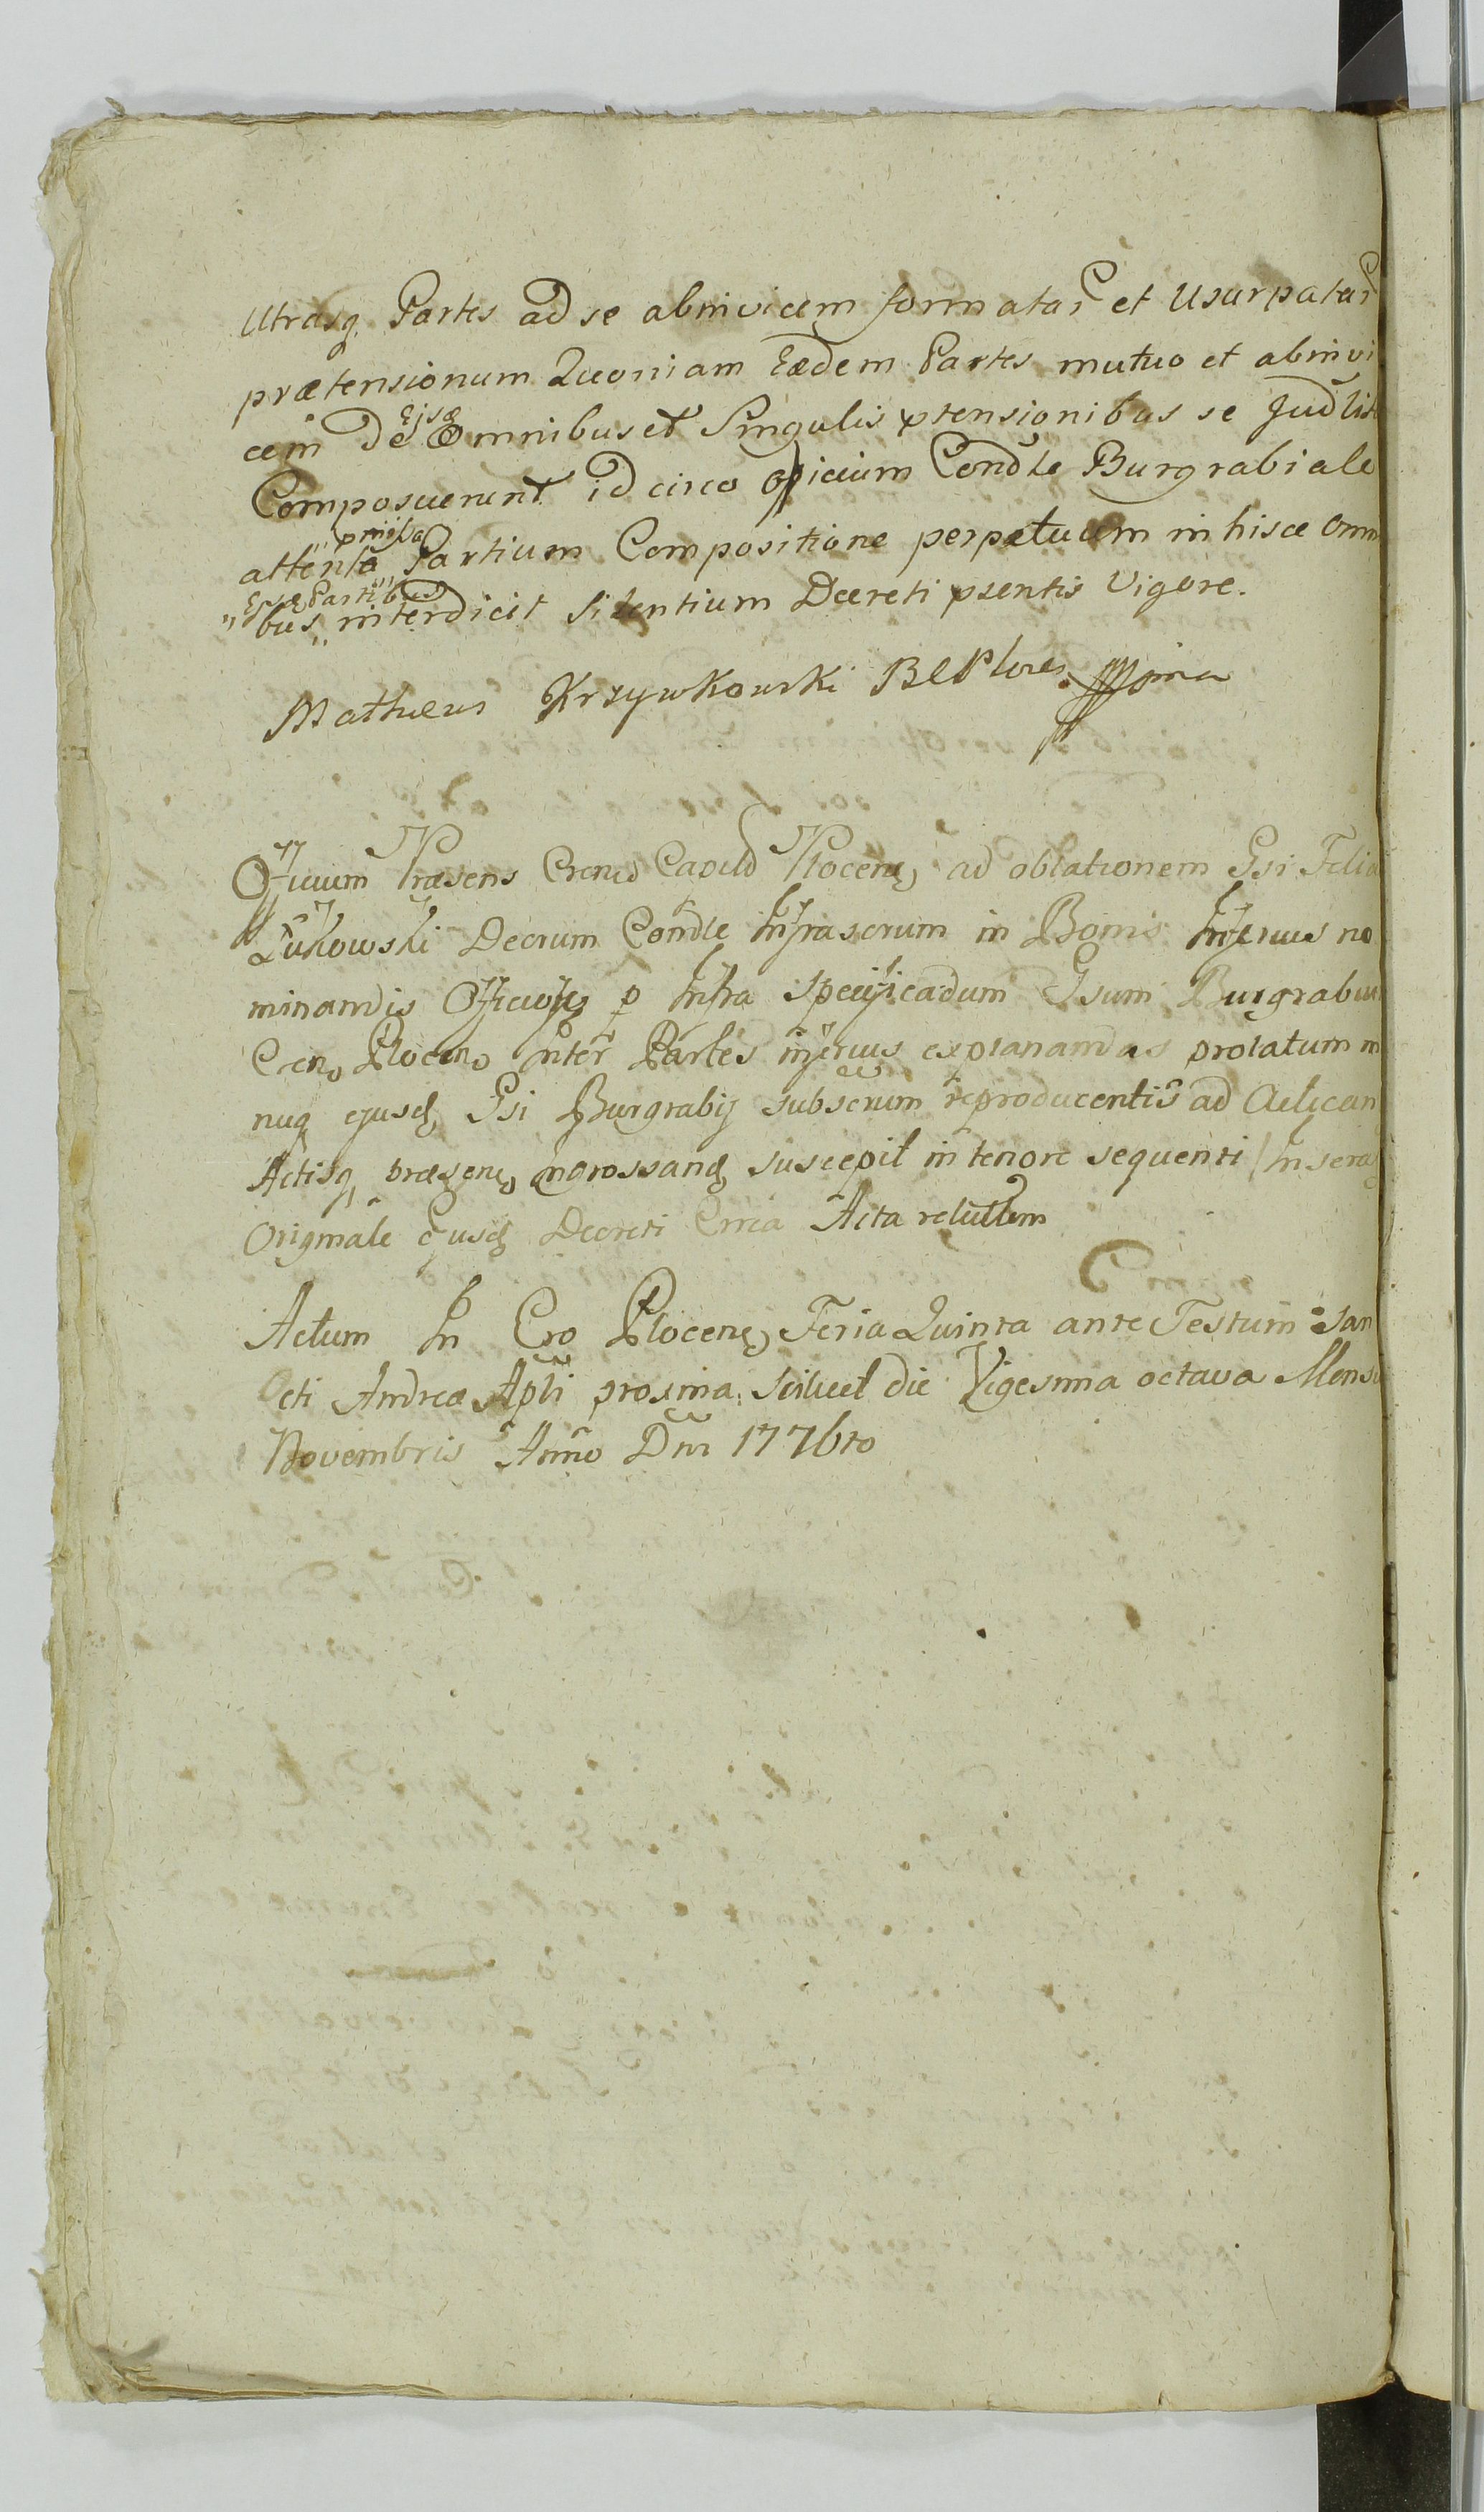 Utrasq. Partes ad se abinvicem formatar et Usurpatar
prætensionum Quoniam Eædem Partes mutuo et abinvi
cem De Eisd Omnibus et Singulis ptensionibus se Judlit
Composuerunt idcirco officium Condle Burgrabiale
attenta pmissa Partium Compositione perpetuum in hisce Omni
bus Eisd Partibus interdicit Silentium Decreti psentis Vigore.
Mathæus Krzywkowski B C Ploces mpria
Officium Præsens Crense Capitle Plocens, ad oblationem Gsi Felicis
Zukowski Decrum Condle Infrascrum in Bonis Inferius no
minandis Officiose p Infra Specificadum Gsum Burgrabium
Cren, Plocen, inter Partes inferius explanandas prolatum m
nuq ejusd, Gsi Burgrabij subscrum reproducentis ad Acticand
Actisq præsens, ingrossand, suscepit in tenore sequenti Insera
Originale Ejusd Decreti Circa Acta relictum
Actum In Cro Plocens, Feria Quinta ante Festum San
cti Andreæ Apli proxima, scilicet die Vigesima octava Mensis
Novembris Anno Dni 1776to